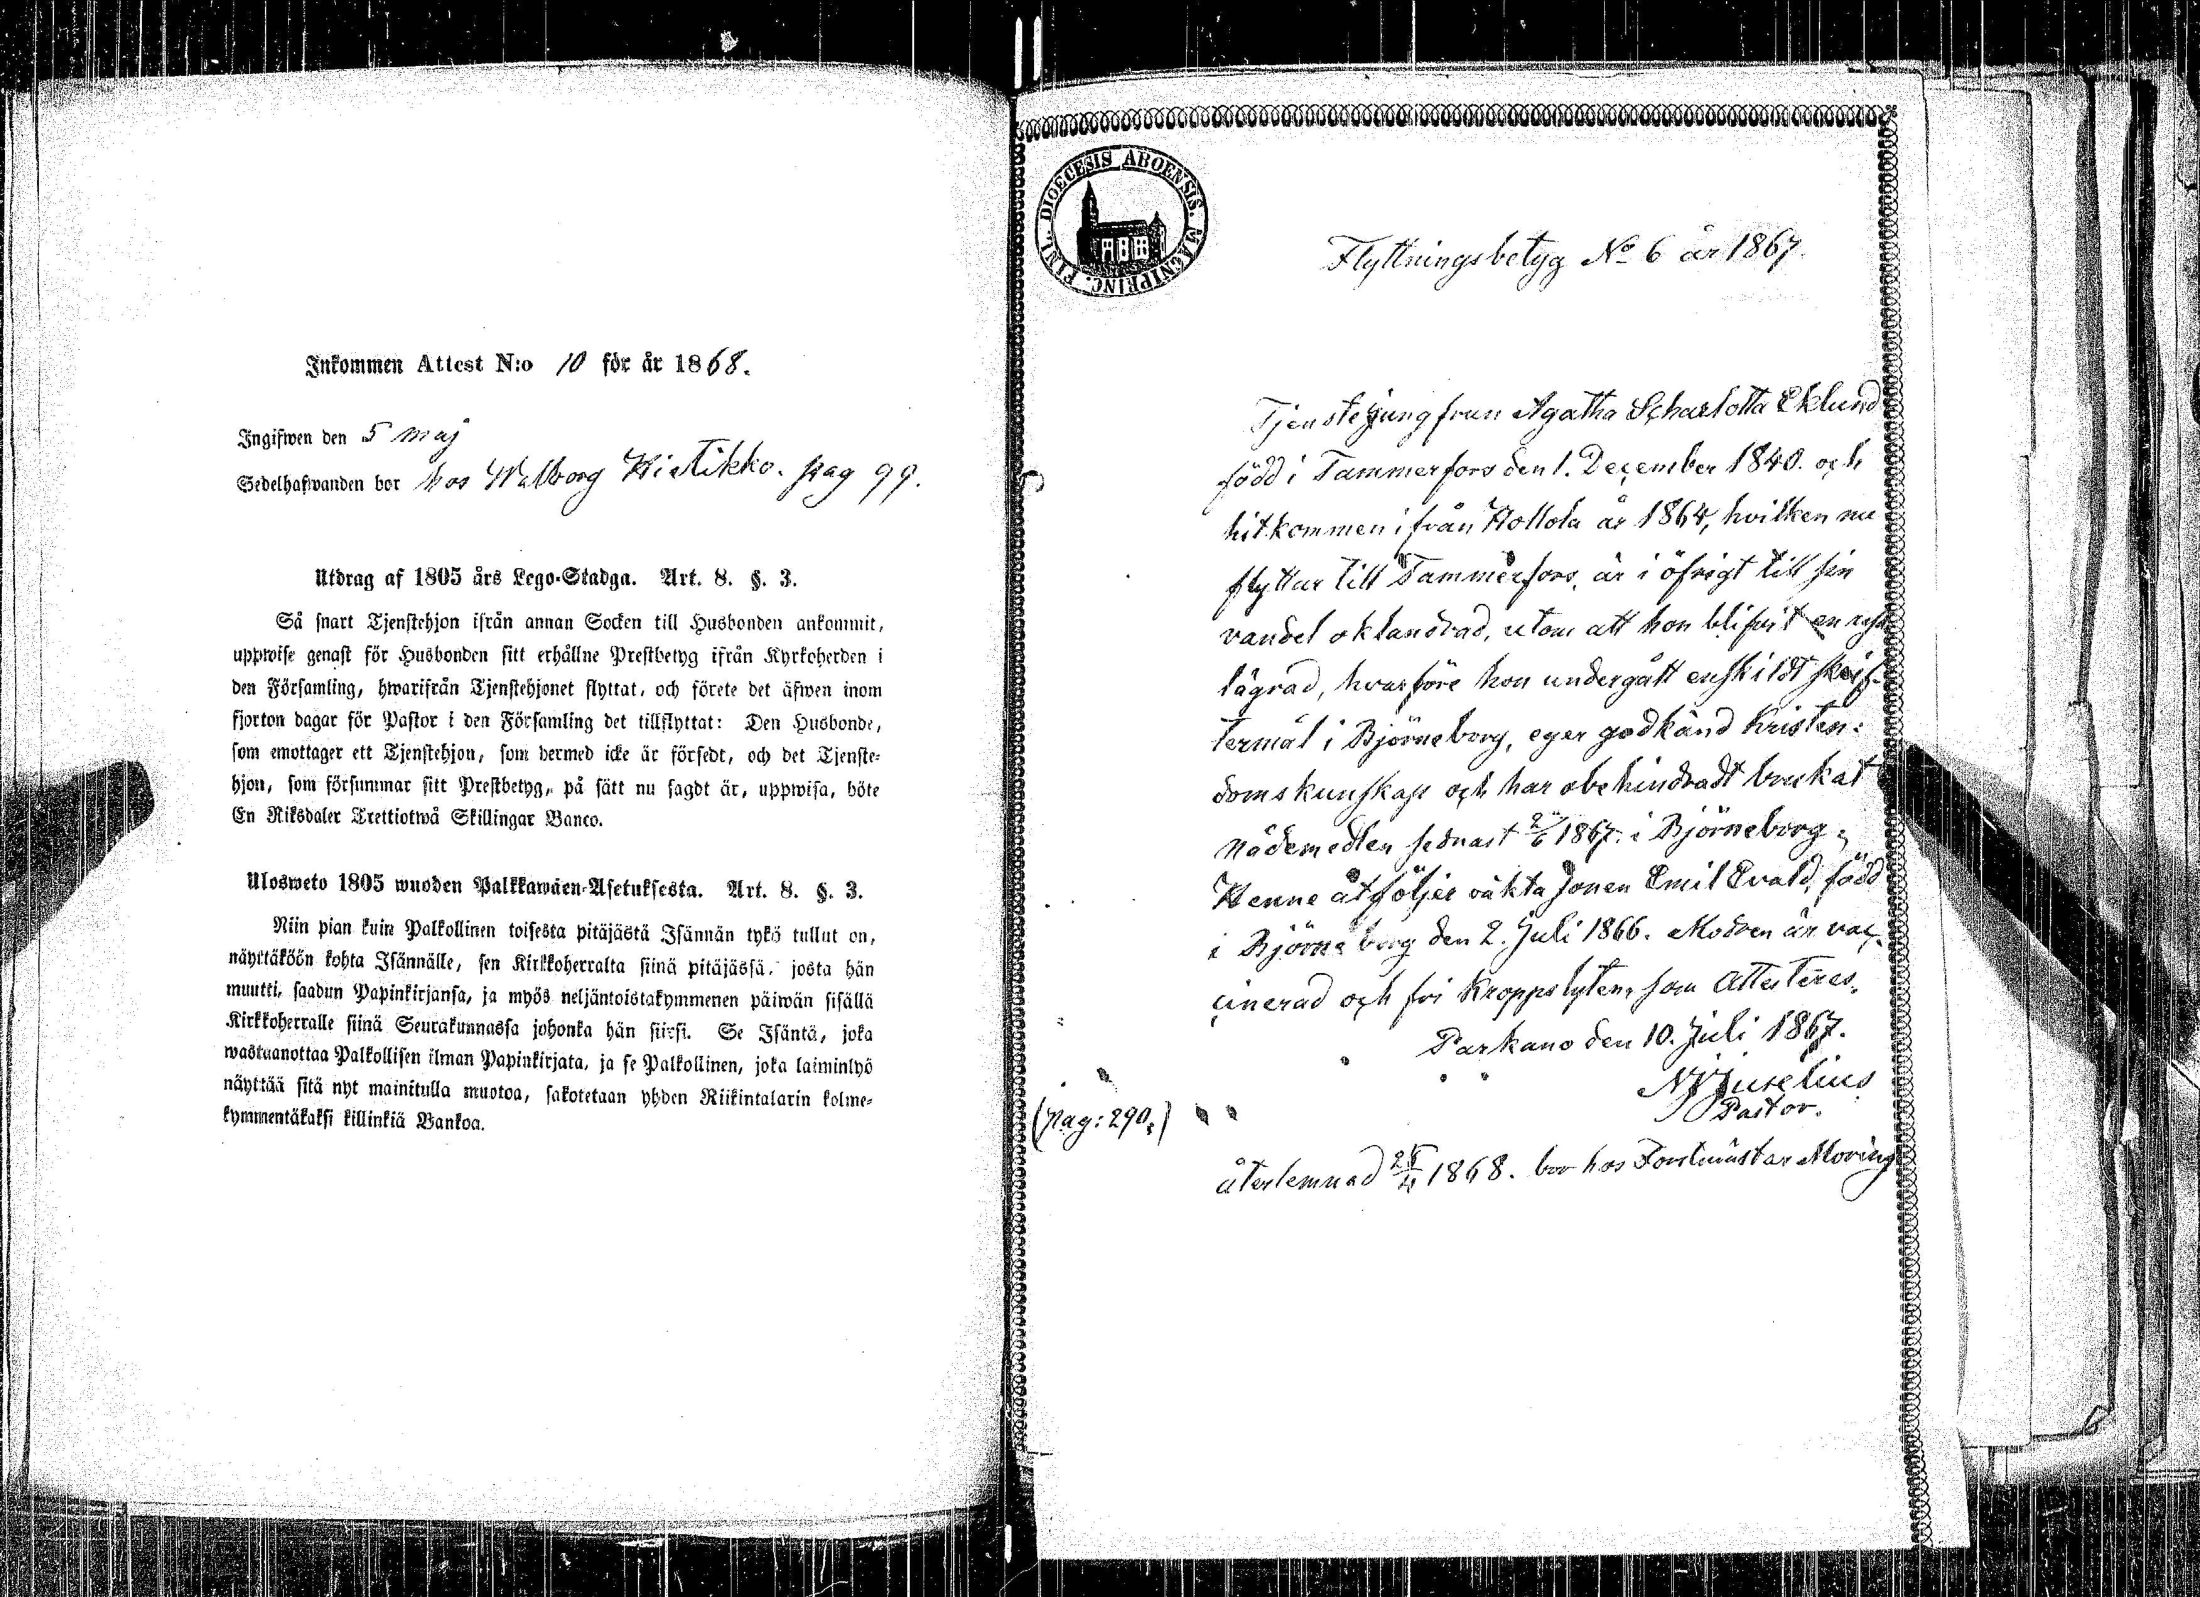 Inkommen Attest N:o 10 för år 1868.
Ingifwen den 5 maj
Sedelhafwanden bor hos Walborg Hietikko. pag 99.
Utdrag af 1805 års Lego-Stadga. Art. 8. §. 3.
Så snart Tjenstehjon ifrån annan Socken till Husbonden ankommit,
uppwise genast för Husbonden sitt erhållne Prestbetyg ifrån Kyrkoherden i
den Församling, hwarifrån Tjenstehjonet flyttat, och förete det äfwen inom
fjorton dagar för Pastor i den Församling det tillflyttat: Den Husbonde,
som emottager ett Tjenstehjon, som dermed icke är försedt, och det Tjenste-
hjon, som försummar sitt Prestbetyg, på sätt nu sagdt är, uppwisa, böte
En Riksdaler Trettiotwå Skillingar Banco.
Ulosweto 1805 wuoden Palkkawäen-Asetuksesta. Art. 8. §. 3.
Niin pian kuin Palkollinen toisesta pitäjästä Isännän tykö tullut on,
näyttäköön kohta Isännälle, sen Kirkkoherralta siinä pitäjässä, josta hän
muutti, saadun Papinkirjansa, ja myös neljäntoistakymmenen päiwän sisällä
Kirkkoherralle siinä Seurakunnassa johonka hän siirsi. Se Isäntä, joka
wastaanottaa Palkollisen ilman Papinkirjata, ja se Palkollinen, joka laiminlyö
näyttää sitä nyt mainitulla muotoa, sakotetaan yhden Riikintalarin kolme-
kymmentäkaksi killinkiä Bankoa.
DIOECESIS ABOENSIS. MAGNIPRINC. FINL.
Flyttningsbetyg No 6 år 1867.
Tjenstejungfrun Agatha Scharlotta Eklund
född i Tammerfors den 1. December 1840. och
hitkommen ifrån Hollola år 1864, hvilken nu
flyttar till Tammerfors, är i öfrigt till sin
vandel oklandrad, utom att hon blifvit en resa
lägrad, hvarföre hon undergått enskildt skrif-
termål i Björneborg, eger godkänd Kristen:
doms kunskap och har obehindradt brukat
nådemedlen sednast 2/6 1867. i Björneborg,
Henne åtföljer oäkta sonen Emil Evald, född
i Björneborg den 2. Juli 1866. Modren är vac-
cinerad och fri Kroppslyten, som Attesteres.
Parkano den 10. Juli 1867.
Juselius
Pastor.
(pag: 290.)
återlemnad 1868. bor hos Forstmästar Moring